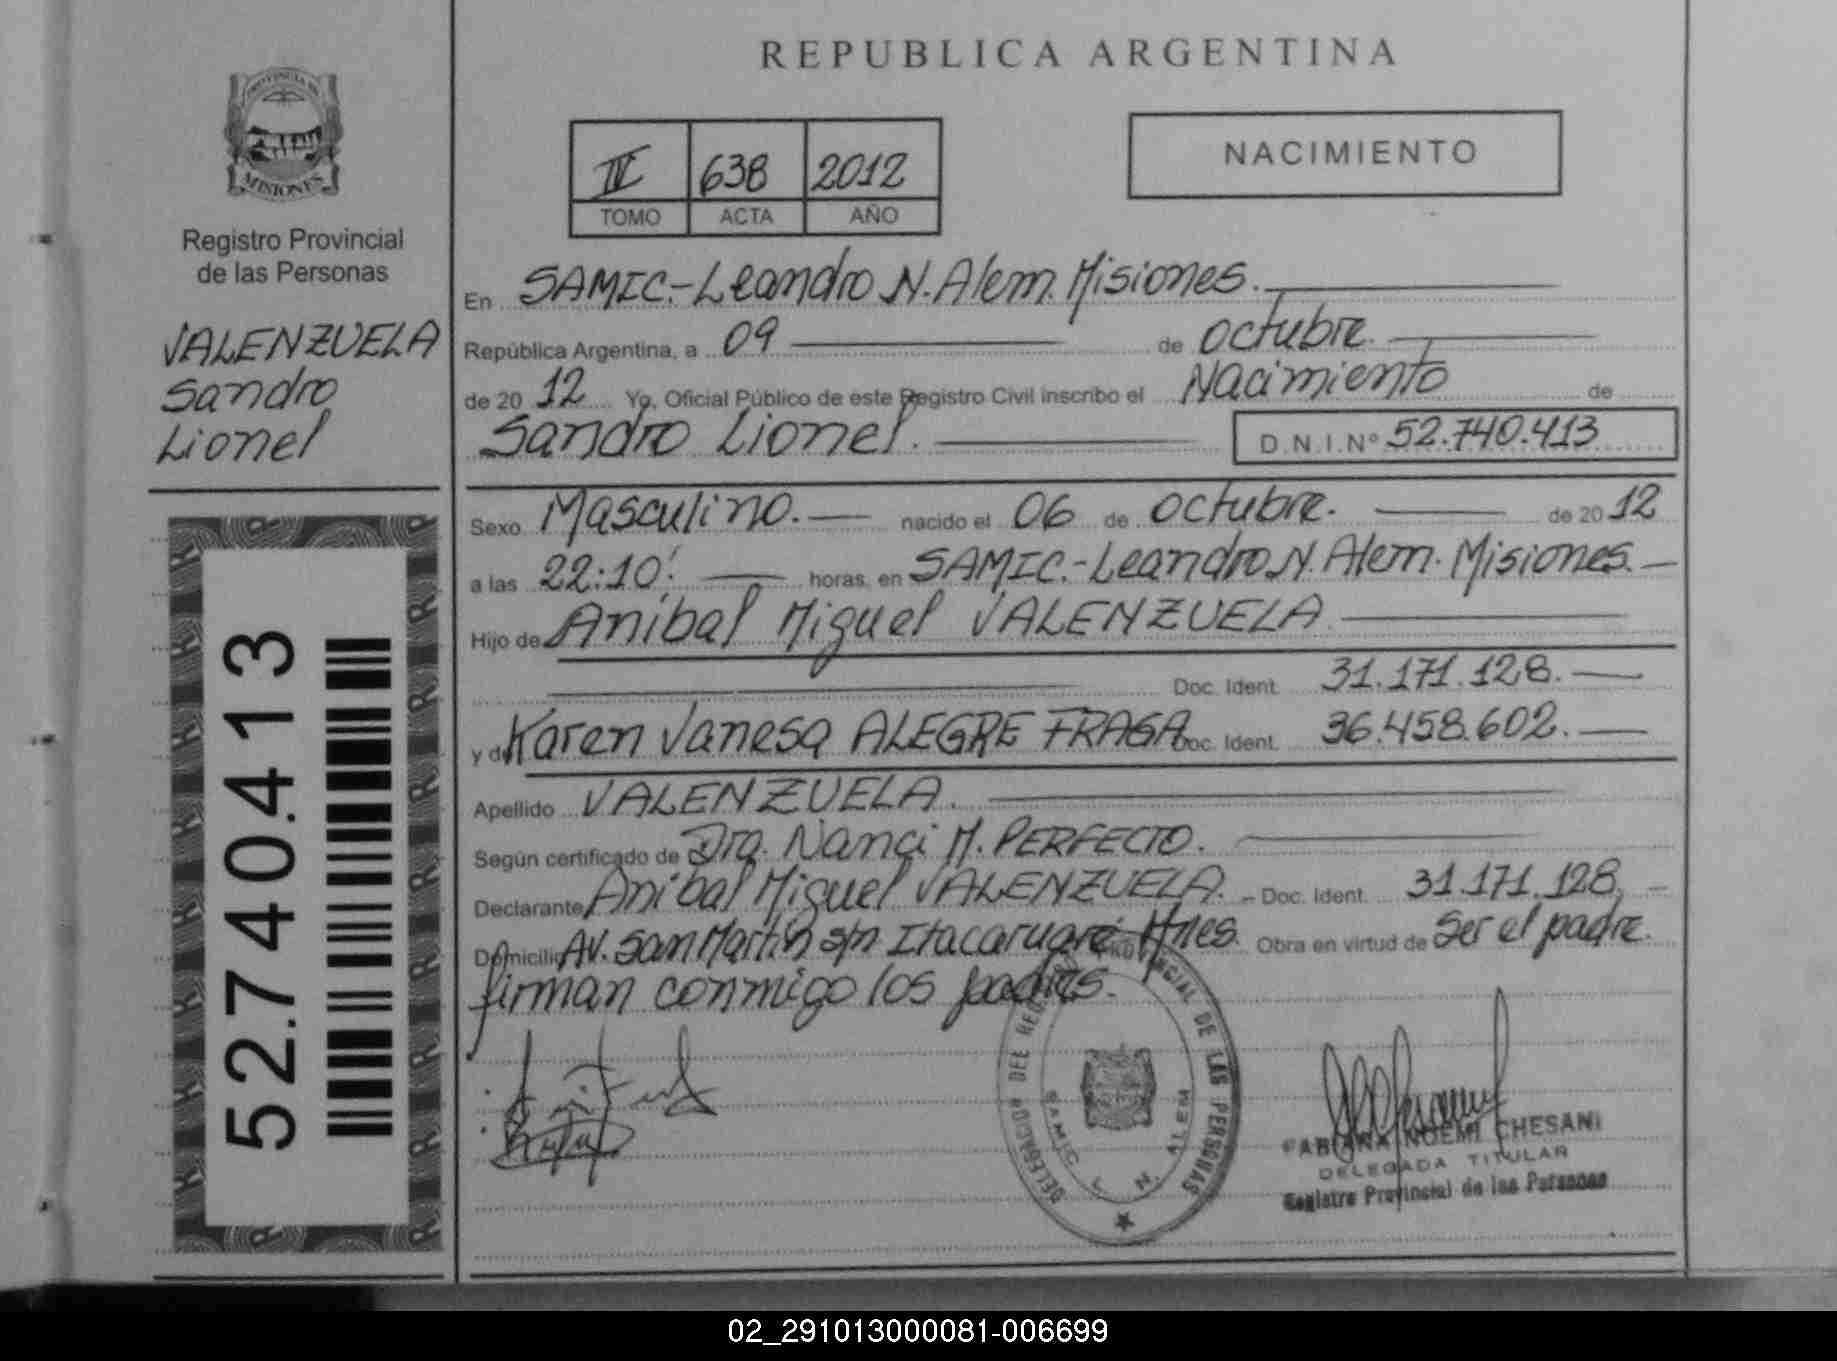 REPUBLICA ARGENTINA
PROVINCIA DE
MISIONES
Registro Provincial
de las Personas
VALENZUELA
Sandro
Lionel
52.740.413
IV 638 2012
TOMO ACTA AÑO
NACIMIENTO
En SAMIC.-Leandro N. Alem. Misiones.
República Argentina, a 09 de octubre.
de 20 12 Yo, Oficial Público de este Registro Civil inscribo el Nacimiento de
Sandro Lionel. D.N.I.Nº 52.740.413
Sexo Masculino. nacido el 06 de octubre. de 20 12
a las 22:10' horas, en SAMIC.-Leandro N. Alem. Misiones.
Hijo de Anibal Miguel VALENZUELA
Doc. Ident. 31.171.128.
y de Karen Vanesa ALEGRE FRAGA Doc. Ident. 36.458.602.
Apellido VALENZUELA.
Según certificado de Dra. Nanci M. PERFECTO.
Declarante Anibal Miguel VALENZUELA. Doc. Ident. 31.171.128.
Domicilio AV. San Martín s/n Itacaruaré Mnes. Obra en virtud de Ser el padre.
firman conmigo los padres.
DELEGACION DEL REGISTRO PROVINCIAL DE LAS PERSONAS
SAMIC L. N. ALEM
FABIANA NOEMI CHESANI
DELEGADA TITULAR
Registro Provincial de las Personas
02_291013000081-006699